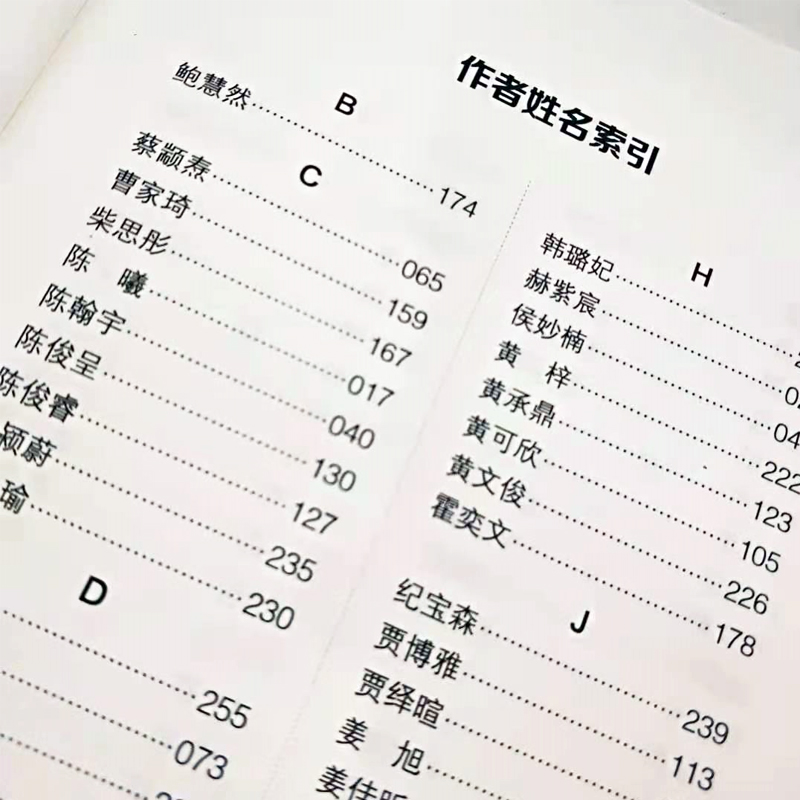 作者姓名索引
B
鲍慧然……174
C
蔡颛焘……065
曹家琦……159
柴思彤……167
陈 曦……017
陈翰宇……040
陈俊呈……130
陈俊睿……127
颖蔚……235
瑜……230
D
……255
……073
H
韩璐妃……
赫紫宸……
侯妙楠……04
黄 梓……222
黄承鼎……123
黄可欣……105
黄文俊……226
霍奕文……178
J
纪宝森……239
贾博雅……113
贾绎暄……
姜 旭……
姜佳